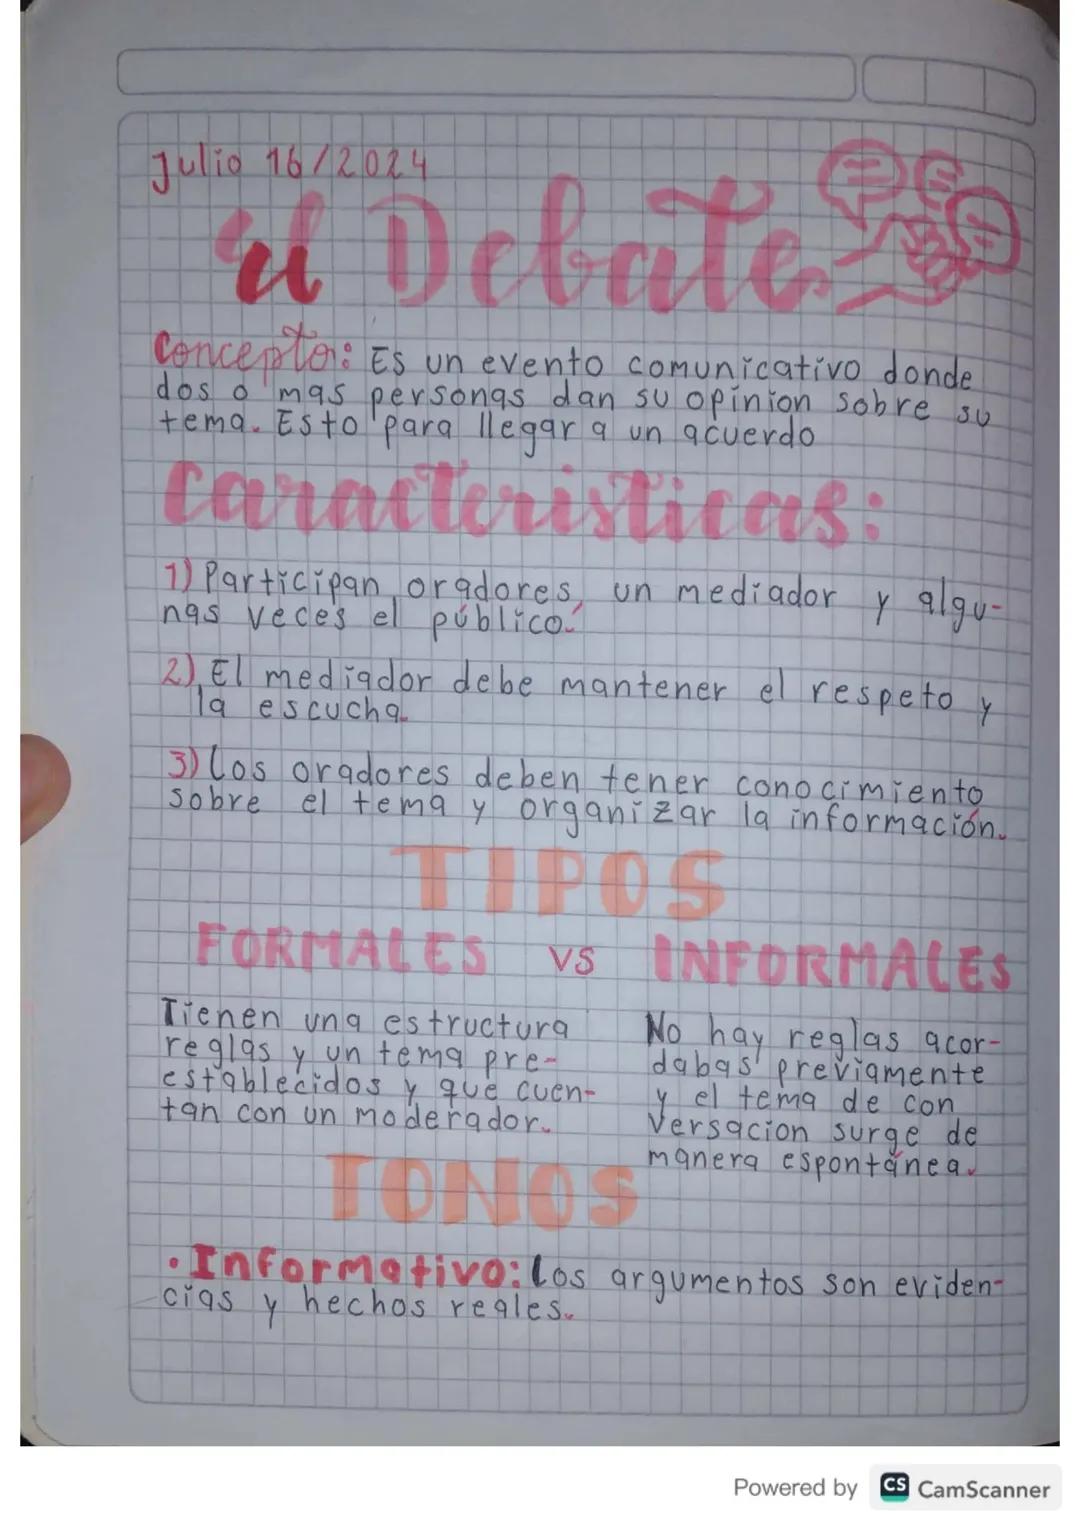 Julio 16/2024
el Debate
Concepto: Es un evento comunicativo donde
dos o mas personas dan su opinion sobre su
tema. Esto para llegar a un acuerdo
Caracteristicas:
1) Participan oradores, un mediador y algu-
nas veces el público.
2) El mediador debe mantener el respeto y
la escucha.
3) Los oradores deben tener conocimiento
sobre el tema y organizar la información.
TIPOS
FORMALES vs INFORMALES
Tienen una estructura
reglas y un tema pre-
establecidos y que cuen-
tan con un moderador.
No hay reglas acor-
dabas previamente
y el tema de con
versacion surge de
manera espontánea.
TONOS
• Informativo: Los argumentos son eviden-
cias y hechos reales.
Powered by CS CamScanner